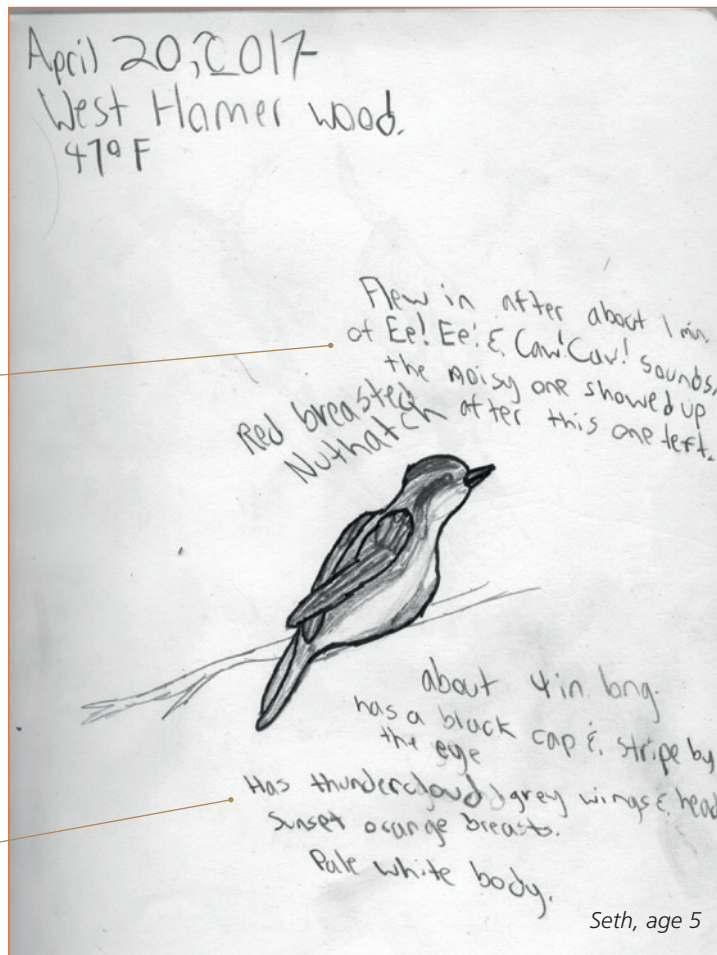 April 20, 2017
West Hamer wood.
47° F
Flew in after about 1 min.
of Ee! Ee! & Caw! Caw! sounds,
the noisy one showed up
after this one left.
Red breasted
Nuthatch
about 4 in. long.
has a black cap & stripe by
the eye
Has thundercloud grey wings & head
Sunset orange breasts.
Pale white body.
Seth, age 5